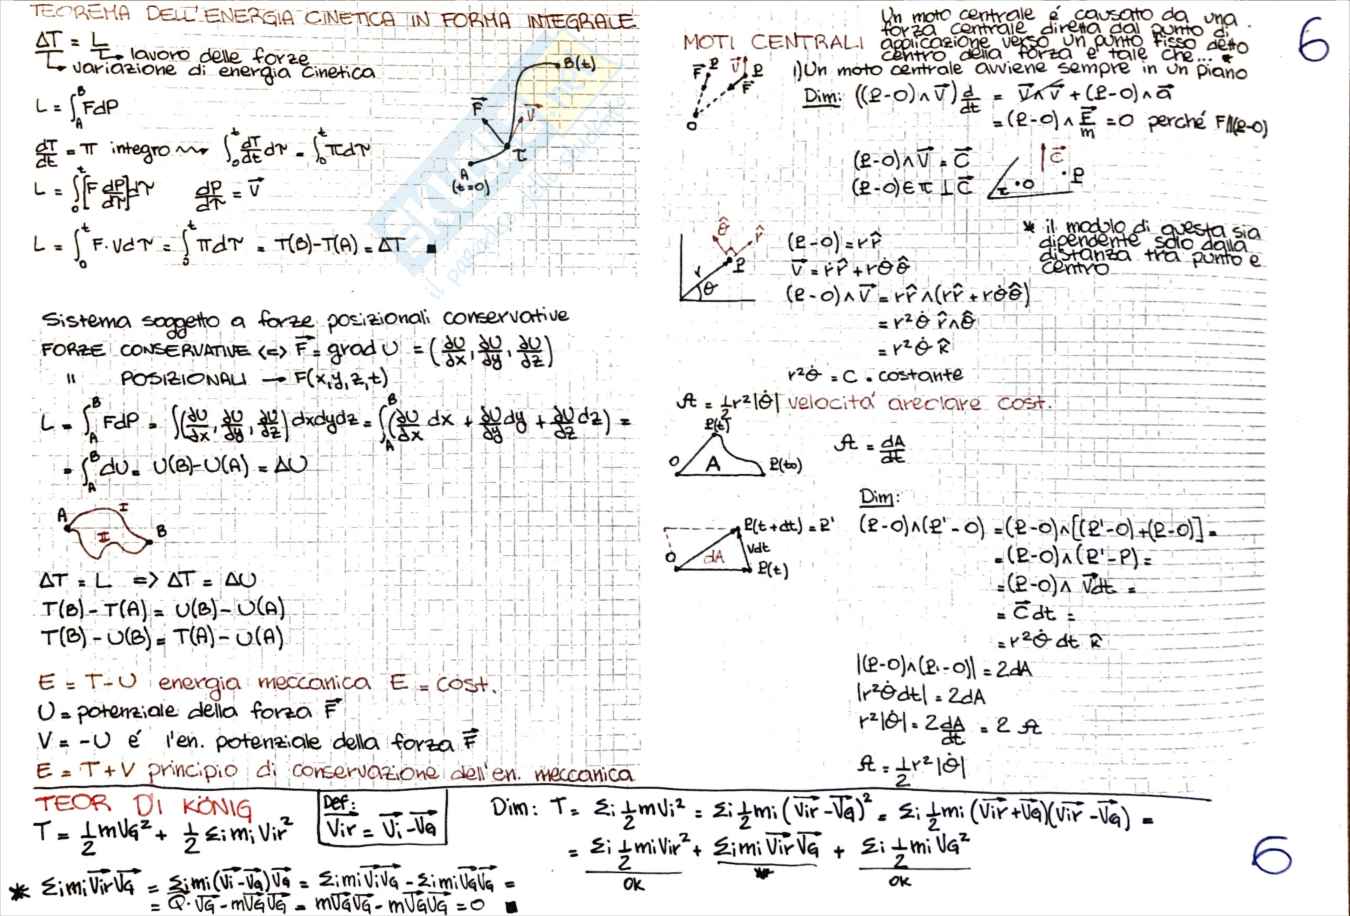 TEOREMA DELL'ENERGIA CINETICA IN FORMA INTEGRALE
ΔT = L
↳ lavoro delle forze
↳ variazione di energia cinetica
L = ∫_A^B F dP
dT/dt = π integro ⇝ ∫_0^t dT/dτ dτ = ∫_0^t π dτ
L = ∫_0^t [F dP/dτ] dτ dP/dτ = V⃗
L = ∫_0^t F·V dτ = ∫_0^t π dτ = T(B)-T(A) = ΔT ■
B(t)
F⃗
V⃗
τ
A
(t=0)
Sistema soggetto a forze posizionali conservative
FORZE CONSERVATIVE <=> F⃗ = grad U = (∂U/∂x, ∂U/∂y, ∂U/∂z)
" POSIZIONALI → F(x,y,z,t)
L = ∫_A^B F dP = ∫(∂U/∂x, ∂U/∂y, ∂U/∂z) dxdydz = ∫_A^B (∂U/∂x dx + ∂U/∂y dy + ∂U/∂z dz) =
= ∫_A^B dU = U(B)-U(A) = ΔU
A I II B
ΔT = L => ΔT = ΔU
T(B) - T(A) = U(B) - U(A)
T(B) - U(B) = T(A) - U(A)
E = T-U energia meccanica E = cost.
U = potenziale della forza F⃗
V = -U é l'en. potenziale della forza F⃗
E = T+V principio di conservazione dell'en. meccanica
6
MOTI CENTRALI
Un moto centrale é causato da una
forza centrale diretta dal punto di
applicazione verso un punto fisso detto
centro della forza e tale che... *
F⃗ P V⃗ P
F⃗
O
1) Un moto centrale avviene sempre in un piano
Dim: ((P-O)∧V⃗) d/dt = V∧V + (P-O)∧a⃗
= (P-O)∧F⃗/m = 0 perché F//(P-O)
(P-O)∧V⃗ = C⃗
(P-O)∈π ⊥ C⃗
C⃗ P
π O
* il modulo di questa sia
dipendente solo dalla
distanza tra punto e
centro
θ̂ r̂
P
r
θ
(P-O) = r r̂
V⃗ = ṙ r̂ + r θ̇ θ̂
(P-O)∧V⃗ = r r̂∧(ṙ r̂ + r θ̇ θ̂)
= r²θ̇ r̂∧θ̂
= r²θ̇ k̂
r²θ̇ = C = costante
𝒜 = 1/2 r²|θ̇| velocita' areolare cost.
P(t)
O A P(t₀)
𝒜 = dA/dt
Dim:
P(t+dt) = P'
Vdt
O dA P(t)
(P-O)∧(P'-O) = (P-O)∧[(P'-O)+(P-O)] =
= (P-O)∧(P'-P) =
= (P-O)∧V⃗dt =
= C⃗ dt =
= r²θ̇ dt k̂
|(P-O)∧(P'-O)| = 2dA
|r²θ̇dt| = 2dA
r²|θ̇| = 2 dA/dt = 2 𝒜
𝒜 = 1/2 r²|θ̇|
TEOR DI KÖNIG
T = 1/2 mVG² + 1/2 Σi mi Vir²
Def:
Vir = Vi - VG
Dim: T = Σi 1/2 mVi² = Σi 1/2 mi (Vir - VG)² = Σi 1/2 mi (Vir+VG)(Vir - VG) =
= Σi 1/2 mi Vir² + Σi mi Vir VG + Σi 1/2 mi VG²
ok * ok
* Σi mi Vir VG = Σi mi (Vi-VG) VG = Σi mi Vi VG - Σi mi VG VG =
= Q·VG - mVG VG = mVG VG - mVG VG = 0 ■
6